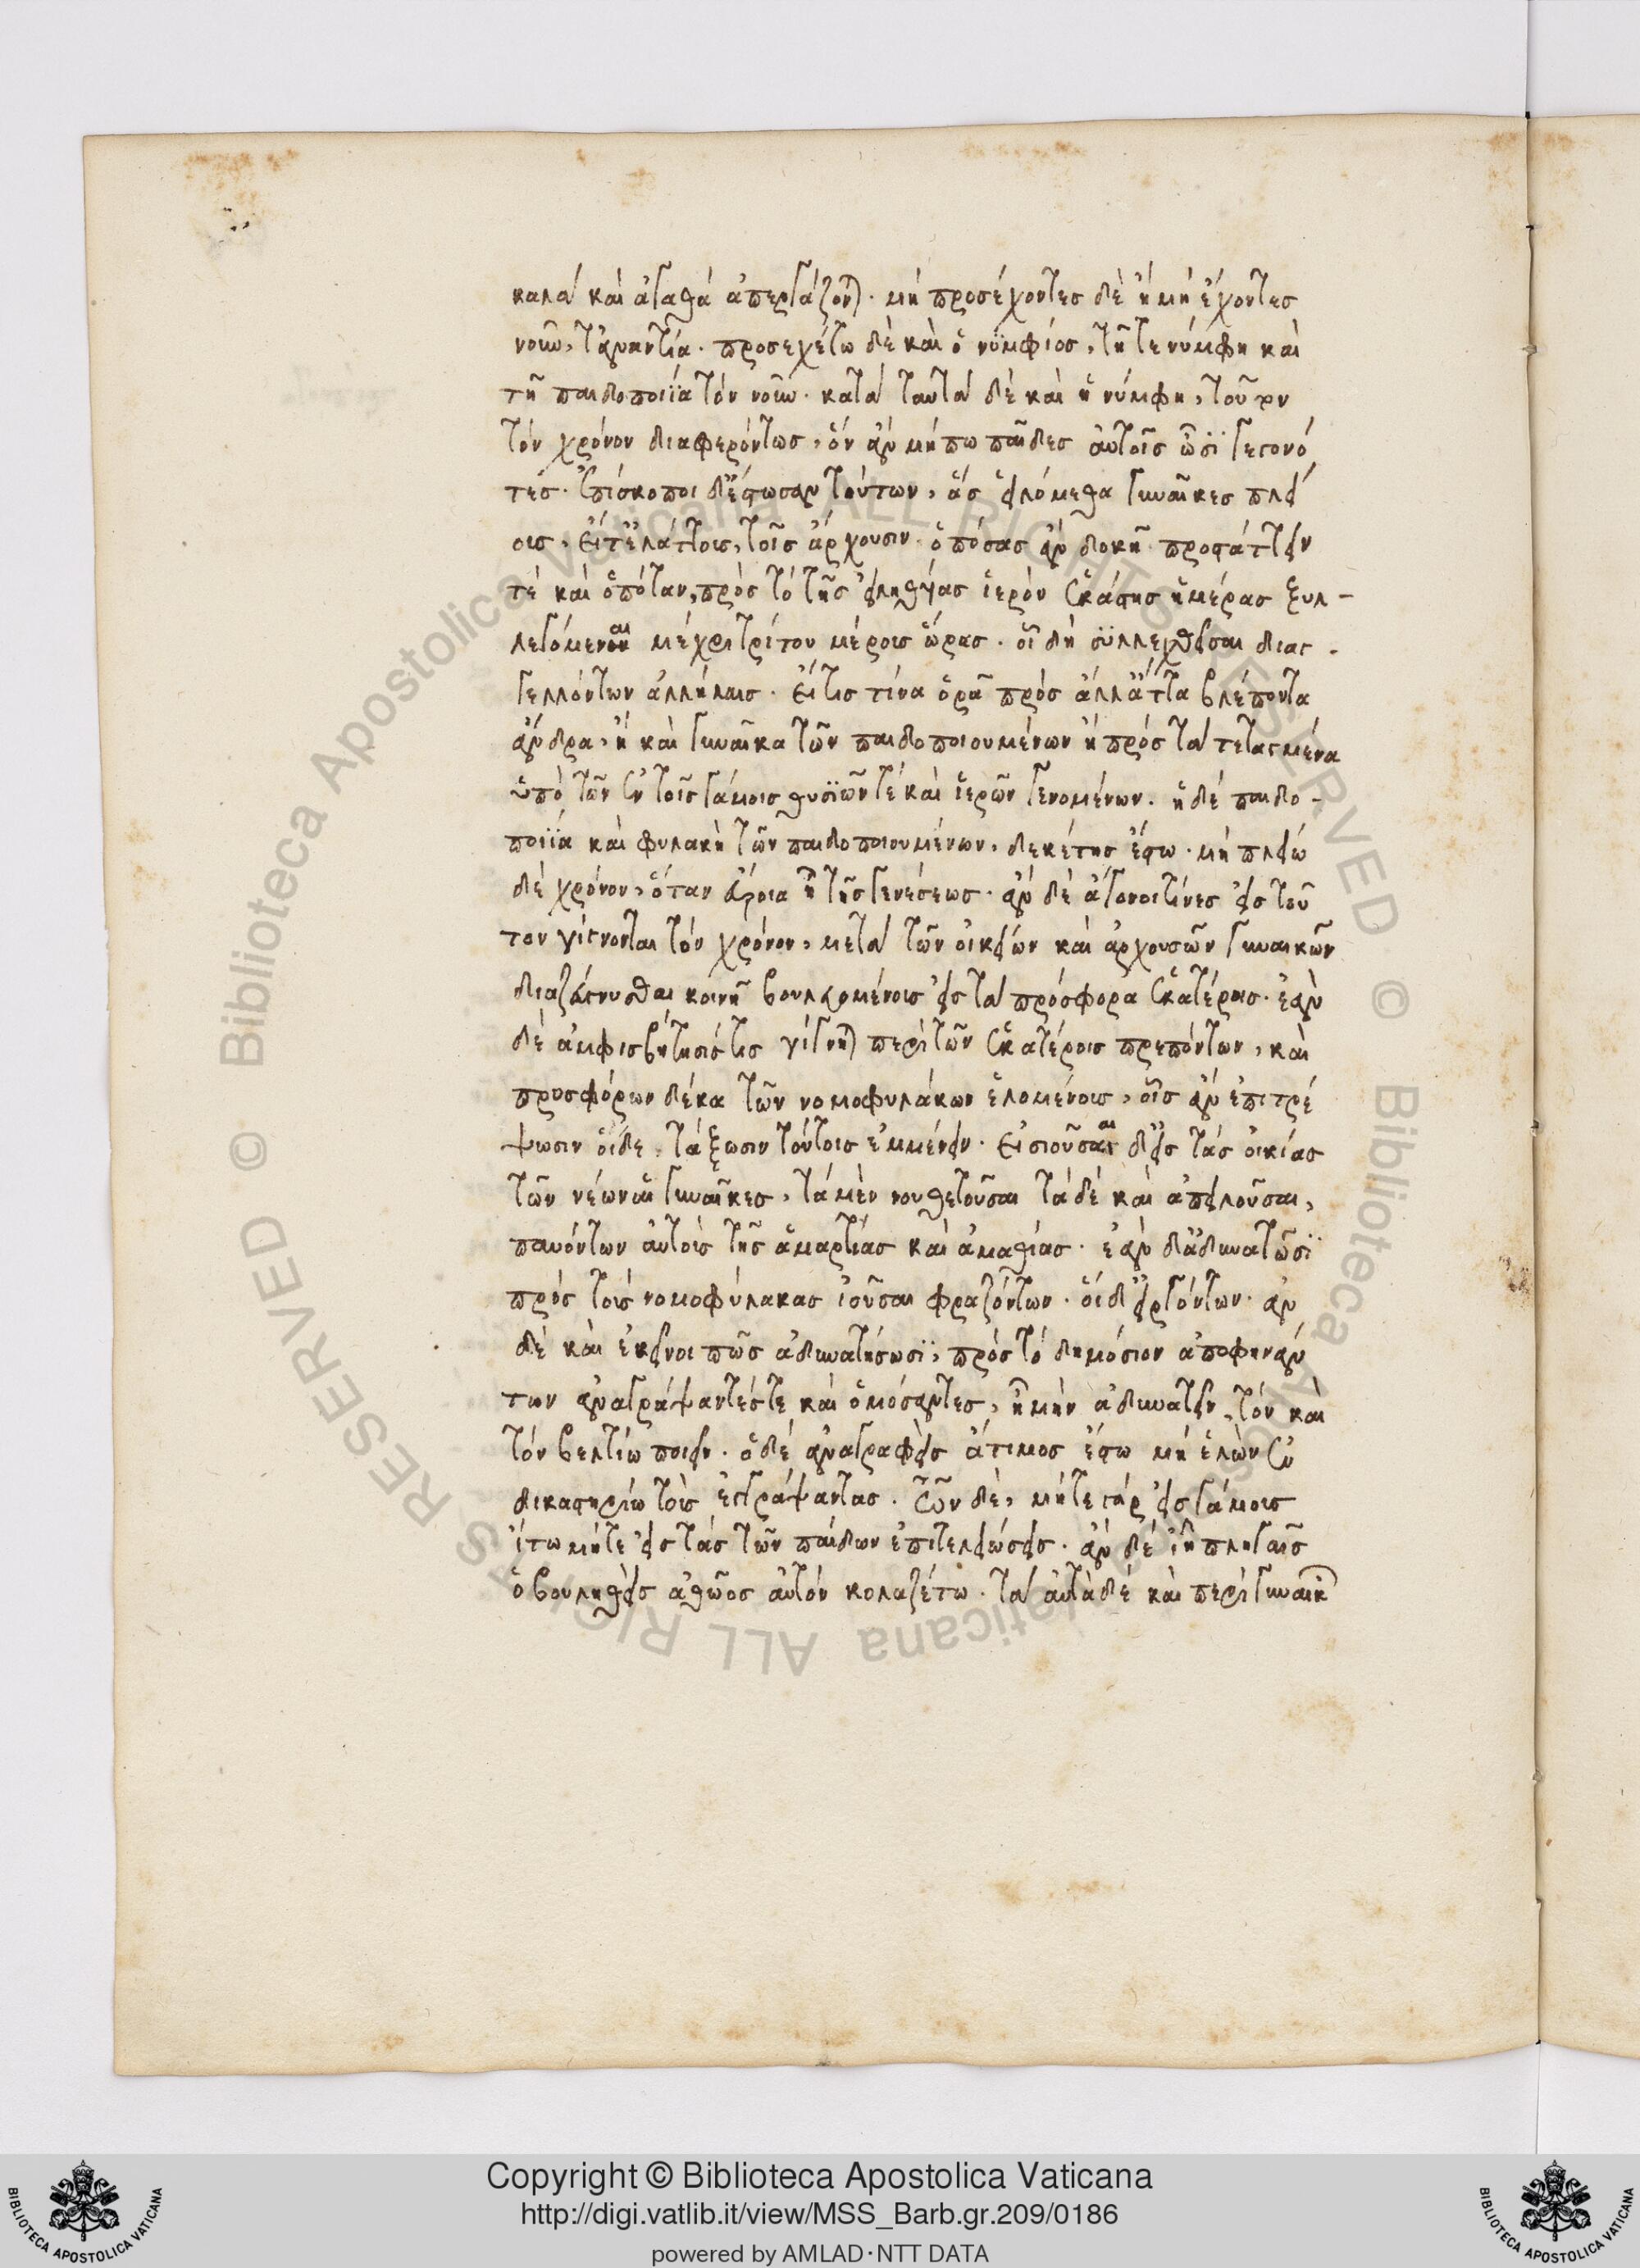 καλὰ καὶ ἀγαθὰ ἀπεργάζονται. μὴ προσέχοντες δὲ ἢ μὴ ἔχοντες
νοῦν, τἀναντία. προσεχέτω δὲ καὶ ὁ νϋμφίος, τῆ τε νύμφη καὶ
τῆ παιδοποιΐα τὸν νοῦν. κατὰ ταυτὰ δὲ καὶ ἡ νύμφη, τοῦτον
τὸν χρόνον διαφερόντως, ὃν ἂν μήπω παῖδες αὐτοῖς ὦσϊ γεγονό
τες. ἐπίσκοποι δ' ἔστωσαν τούτων, ἃς εἱλόμεθα γυναῖκες πλεί
ους, εἴτ' ἐλάττους, τοῖς ἄρχουσιν ὁπόσας ἂν δοκῆ προστάττειν
τὲ καὶ ὁπόταν, πρὸς τὸ τῆς εἰληθυίας ἱερὸν ἑκάστης ἡμέρας ξυλ-
λεγόμεναι μέχρι τρίτου μέρους ὥρας. οἷ δὴ σϋλλεχθεῖσαι διαγ-
γελλόντων ἀλλήλαις. εἴ τις τίνα ὁρᾶ πρὸς ἄλλ' ἄττα βλέποντα
ἄνδρα, ἢ καὶ γυναῖκα τῶν παιδοποιουμένων ἢ πρὸς τὰ τεταγμένα
ὑπὸ τῶν ἐν τοῖς γάμοις θυσϊῶν τὲ καὶ ἱερῶν γενομένων. ἡ δὲ παιδο-
ποιΐα καὶ φυλακὴ τῶν παιδοποιουμένων, δεκέτης ἔστω. μὴ πλείω
δὲ χρόνον, ὅταν εὔροια ἦ τῆς γενέσεως. ἂν δὲ ἄγονοι τίνες εἰς τοῦ
τον γίγνονται τὸν χρόνον, μετὰ τῶν οἰκείων καὶ ἀρχουσῶν γυναικῶν
διαζεύγνυσθαι κοινῆ βουλευομένους εἰς τὰ πρόσφορα ἑκατέροις. ἐὰν
δὲ ἀμφισβήτησίς τις γίγνηται περὶ τῶν ἑκατέροις πρεπόντων, καὶ
προσφόρων δέκα τῶν νομοφυλάκων ἑλομένους, οἷς ἂν ἐπιτρέ
ψωσιν οἵδε τάξωσιν τούτοις ἐμμένειν. εἰσιοῦσαι δ' εἰς τὰς οἰκίας
τῶν νέων αἱ γυναῖκες, τὰ μὲν νουθετοῦσαι τὰ δὲ καὶ ἀπειλοῦσαι,
παυόντων αὐτοὺς τῆς ἁμαρτίας καὶ ἀμαθίας. ἐὰν δ' ἀδυνατῶσϊ
πρὸς τοὺς νομοφύλακας ἰοῦσαι φραζόντων. οἱ δ' εἰργόντων. ἂν
δὲ καὶ ἐκεῖνοι πῶς ἀδυνατήσωσϊ, πρὸς τὸ δημόσιον ἀποφηνάν
των ἀναγράψαντές τε καὶ ὀμόσαντες, ἦ μὴν ἀδυνατεῖν, τὸν καὶ
τὸν βελτίω ποιεῖν. ὁ δὲ ἀναγραφεὶς ἄτιμος ἔστω μὴ ἑλὼν ἐν
δικαστηρίω τοὺς ἐγγράψαντας. τῶνδε, μήτε γὰρ εἰς γάμους
ἴτω μήτε εἰς τὰς τῶν παίδων ἐπιτελειώσεις. ἂν δὲ ἴη πληγαῖς
ὁ βουληθεὶς ἀθῶος αὐτὸν κολαζέτω. τὰ αὐτὰ δὲ καὶ περὶ γυναικὸς
Copyright © Biblioteca Apostolica Vaticana
http://digi.vatlib.it/view/MSS_Barb.gr.209/0186
powered by AMLAD·NTT DATA
BIBLIOTECA APOSTOLICA VATICANA
BIBLIOTECA APOSTOLICA VATICANA
© Biblioteca Apostolica Vaticana ALL RIGHTS RESERVED © Biblioteca Apostolica Vaticana ALL RIGHTS RESERVED